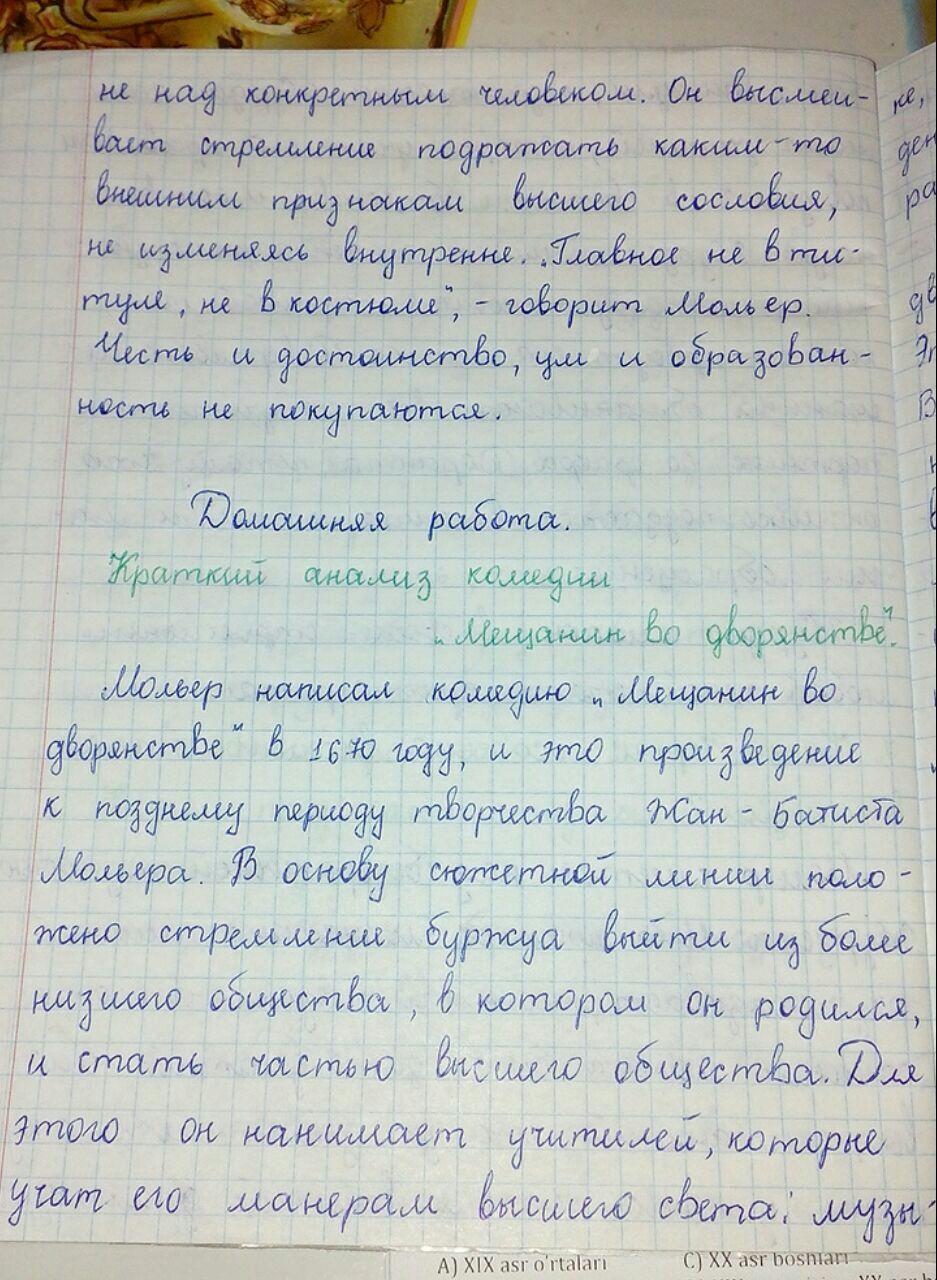 не над конкретным человеком. Он высмеи-
вает стремление подражать каким-то
внешним признакам высшего сословия,
не изменяясь внутренне. „Главное не в ти-
туле, не в костюме", - говорит Мольер.
Честь и достоинство, ум и образован-
ность не покупаются.
Домашняя работа.
Краткий анализ комедии
„Мещанин во дворянстве".
Мольер написал комедию „Мещанин во
дворянстве" в 1670 году, и это произведение
к позднему периоду творчества Жан-Батиста
Мольера. В основу сюжетной линии поло-
жено стремление буржуа выйти из более
низшего общества, в котором он родился,
и стать частью высшего общества. Для
этого он нанимает учитилей, которые
учат его манерам высшего света: музы-
A) XIX asr o'rtalari C) XX asr boshlari